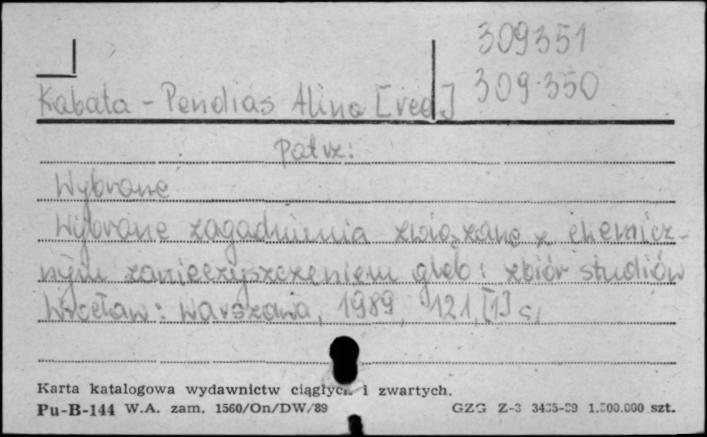 309351
309350
Kabata - Pendias Alina [red]
Patrz:
Wybrane
Wybrane zagadnienia związane z chemicz-
nym zanieczyszczeniem gleb: zbiór studiów
Wrocław: Warszawa, 1989, 121, [1] s,
Karta katalogowa wydawnictw ciągłych i zwartych.
Pu-B-144 W.A. zam. 1560/On/DW/89 GZG Z-3 1.500.000 szt.